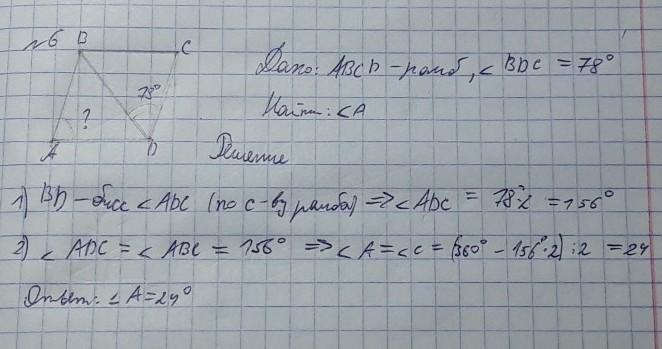 №6 B C
78°
?
A D
Дано: ABCD - ромб, ∠BDC = 78°
Найти: ∠A
Решение
1) BD - бисс ∠ADC (по с-ву ромба) => ∠ADC = 78°·2 = 156°
2) ∠ADC = ∠ABC = 156° => ∠A = ∠C = (360° - 156°·2) : 2 = 24
Ответ: ∠A = 24°